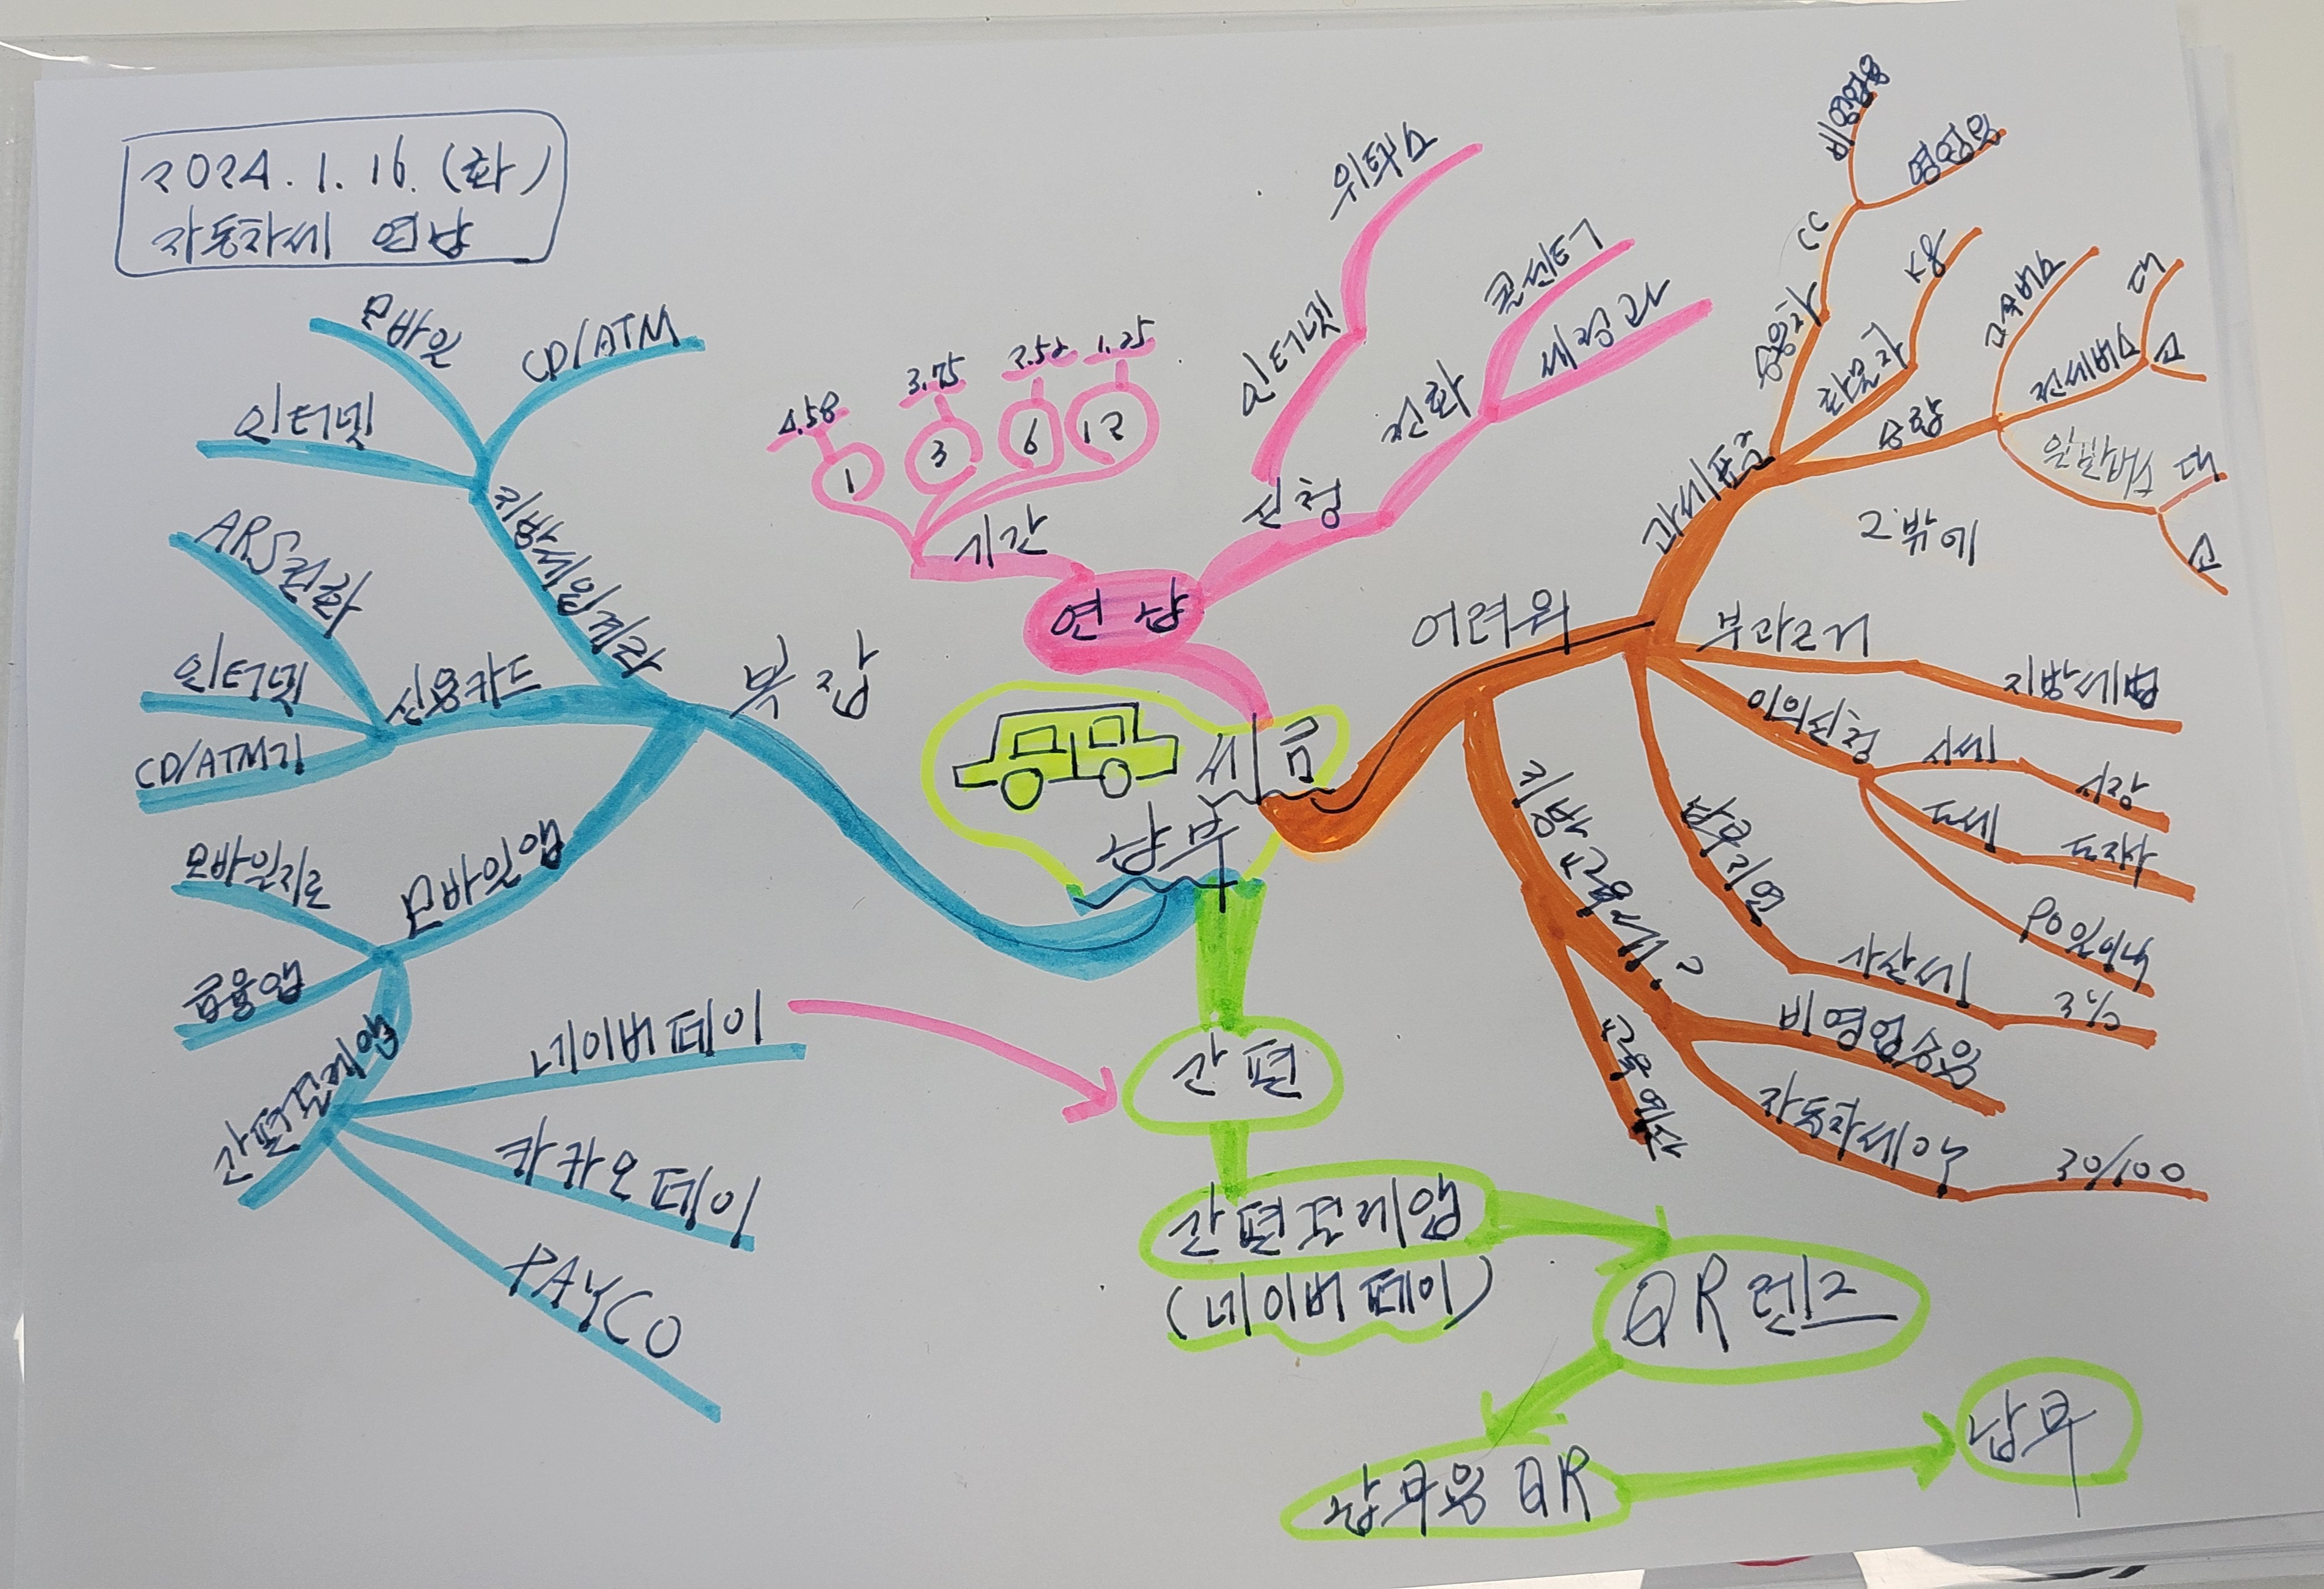 2024.1.16.(화)
자동차세 연납
세금
납부
연납
기간
1
4.58
3
3.75
6
2.52
12
1.25
신청
인터넷
위택스
전화
콜센터
세정과
어려워
과세표준
승용차
cc
비영업용
영업용
화물차
승합
고속버스
전세버스
대
소
일반버스
대
소
그 밖에
부과근거
지방세법
이의신청
시세
시장
도세
도지사
90일이내
납부지연
가산세
3%
지방교육세
비영업승용
자동차세액
30/100
교육예산
간편
간편결제앱
(네이버 페이)
QR렌즈
납부용 QR
납부
복잡
지방세입계좌
인터넷
모바일
CD/ATM
신용카드
ARS전화
인터넷
CD/ATM기
모바일앱
모바일지로
금융앱
간편결제앱
네이버 페이
카카오 페이
PAYCO